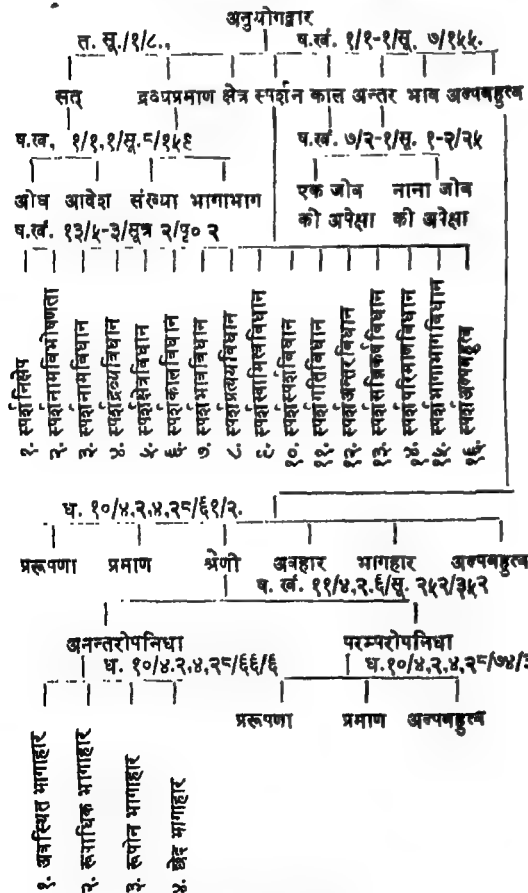 अनुयोगद्वार
त. सू./१/८., ष.खं. १/१-१/सू. ७/१५५.
सत् द्रव्यप्रमाण क्षेत्र स्पर्शन काल अन्तर भाव अल्पबहुत्व
ष.ख, १/१,१/सू.८/१५९ ष.खं. ७/२-१/सू. १-२/२५
ओघ आदेश संख्या भागाभाग एक जीव नाना जीव
की अपेक्षा की अपेक्षा
ष.खं. १३/५-३/सूत्र २/पृ० २
१. स्पर्शनिक्षेप
२. स्पर्शनामविभाषणता
३. स्पर्शनामविधान
४. स्पर्शद्रव्यविधान
५. स्पर्शक्षेत्रविधान
६. स्पर्शकालविधान
७. स्पर्शभावविधान
८. स्पर्शप्रत्ययविधान
९. स्पर्शस्वामित्वविधान
१०. स्पर्शस्पर्शविधान
११. स्पर्शगतिविधान
१२. स्पर्शअन्तरविधान
१३. स्पर्शसन्निकर्षविधान
१४. स्पर्शपरिमाणविधान
१५. स्पर्शभागाभागविधान
१६. स्पर्शअल्पबहुत्व
ध. १०/४,२,४,२८/६१/२.
प्ररूपणा प्रमाण श्रेणी अवहार भागहार अल्पबहुत्व
ष. खं. ११/४,२.६/सू. २५२/३५२
अनन्तरोपनिधा परम्परोपनिधा
ध. १०/४.२,४,२८/६६/६ ध.१०/४,२,४,२८/७४/३
प्ररूपणा प्रमाण अल्पबहुत्व
१. अवस्थित भागाहार
२. रूपाधिक भागाहार
३. रूपोन भागाहार
४. छेद भागाहार